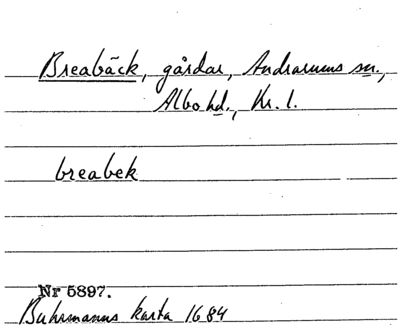 Breabäck, gårdar, Andrarums sn.,
Albo hd., Kr. l.
breabek
Nr 5897.
Buhrmanns karta 1684